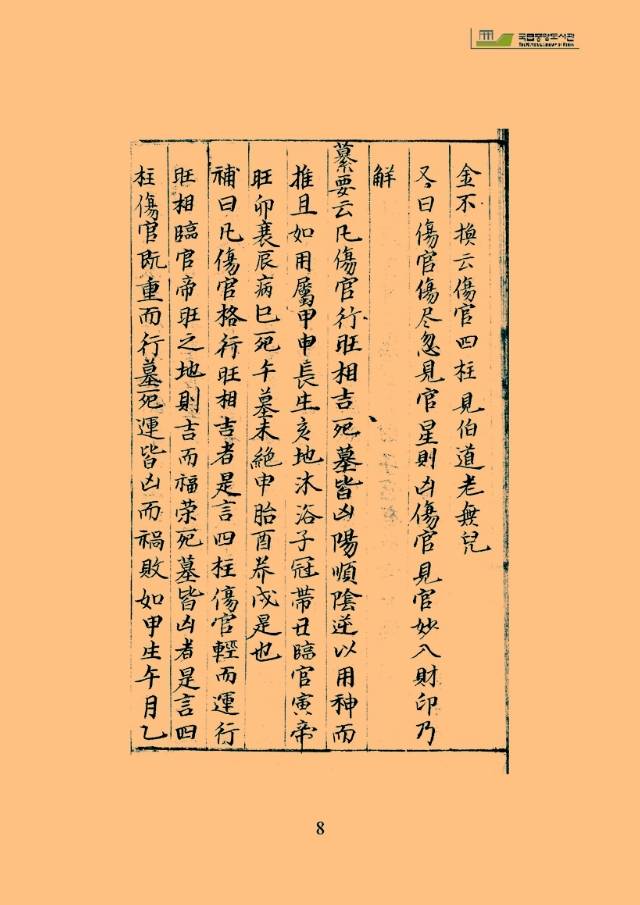 국립중앙도서관
THE NATIONAL LIBRARY OF KOREA
金不換云傷官四柱見伯道老無兒
又曰傷官傷尽忽見官星則凶傷官見官妙入財印乃
解
纂要云凡傷官行旺相吉死墓皆凶陽順陰逆以用神而
推且如用屬甲申長生亥地沐浴子冠帶丑臨官寅帝
旺卯衰辰病巳死午墓未絶申胎酉养戌是也
補曰凡傷官格行旺相吉者是言四柱傷官輕而運行
旺相臨官帝旺之地則吉而福荣死墓皆凶者是言四
柱傷官既重而行墓死運皆凶而禍敗如甲生午月乙
8